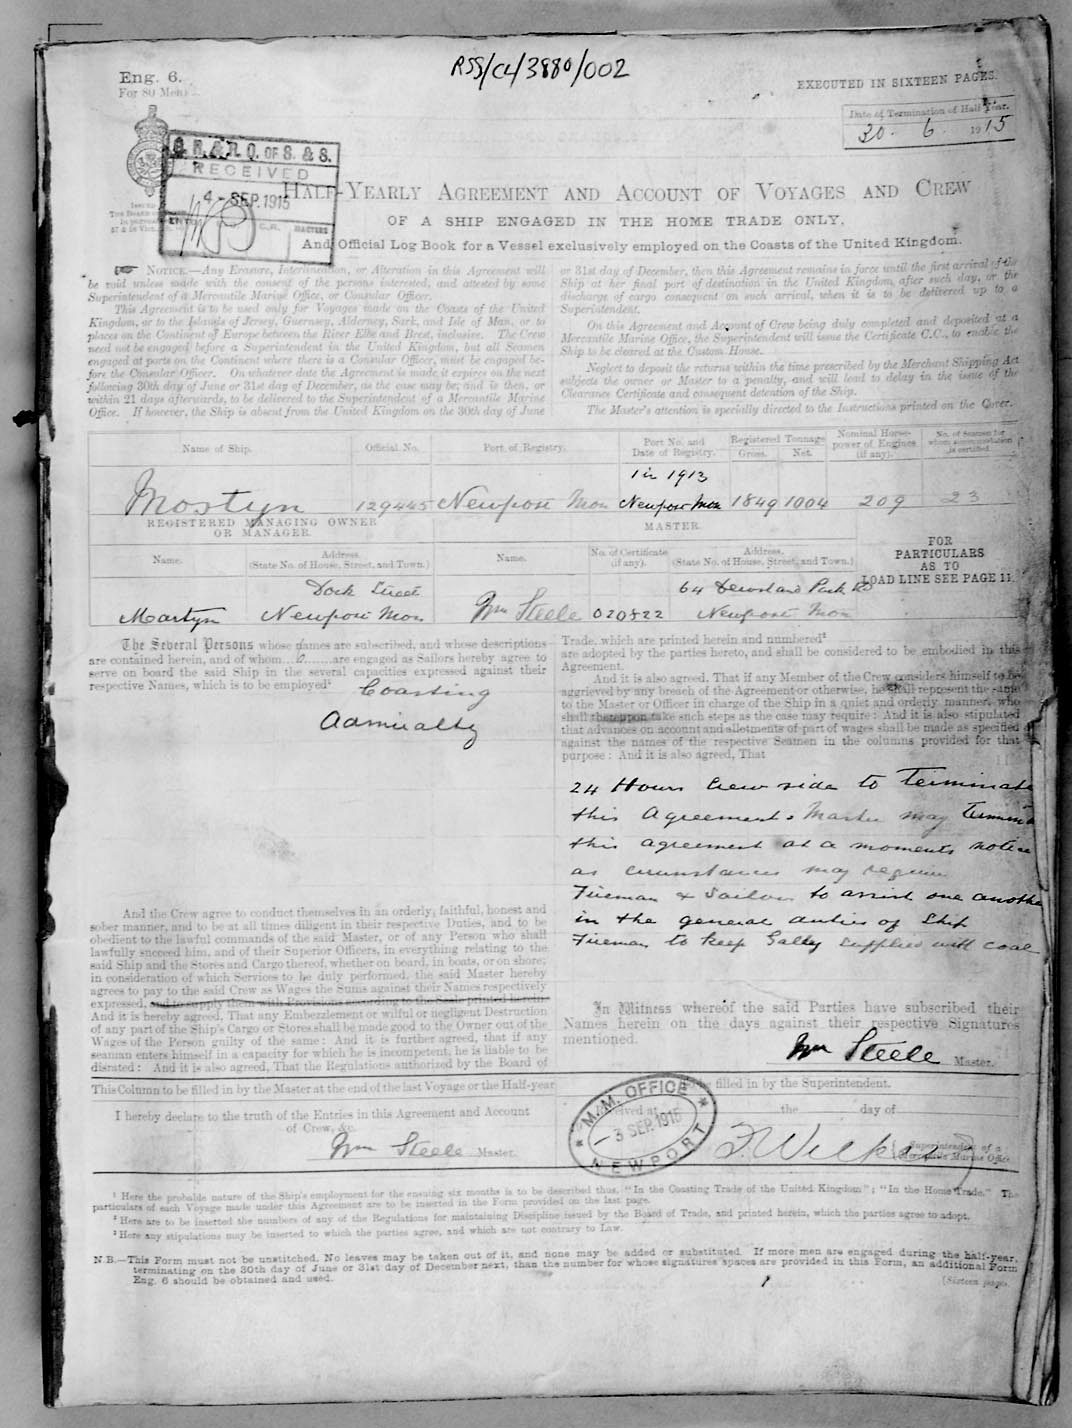 RSS/CL/3880/002
Eng. 6.
For 80 Men.
EXECUTED IN SIXTEEN PAGES.
Date of Termination of Half Year.
30 . 6 . 1915
G. R. & R. O. OF S. & S.
RECEIVED
4 - SEP. 1915
C.R. MASTERS
HALF-YEARLY AGREEMENT AND ACCOUNT OF VOYAGES AND CREW
OF A SHIP ENGAGED IN THE HOME TRADE ONLY,
And Official Log Book for a Vessel exclusively employed on the Coasts of the United Kingdom.
NOTICE.—Any Erasure, Interlineation, or Alteration in this Agreement will
be void unless made with the consent of the persons interested, and attested by some
Superintendent of a Mercantile Marine Office, or Consular Officer.
This Agreement is to be used only for Voyages made on the Coasts of the United
Kingdom, or to the Islands of Jersey, Guernsey, Alderney, Sark, and Isle of Man, or to
places on the Continent of Europe between the River Elbe and Brest, inclusive. The Crew
need not be engaged before a Superintendent in the United Kingdom, but all Seamen
engaged at ports on the Continent where there is a Consular Officer, must be engaged be-
fore the Consular Officer. On whatever date the Agreement is made it expires on the next
following 30th day of June or 31st day of December, as the case may be; and is then, or
within 21 days afterwards, to be delivered to the Superintendent of a Mercantile Marine
Office. If however, the Ship is absent from the United Kingdom on the 30th day of June
or 31st day of December, then this Agreement remains in force until the first arrival of the
Ship at her final port of destination in the United Kingdom, after such day, or the
discharge of cargo consequent on such arrival, when it is to be delivered up to a
Superintendent.
On this Agreement and Account of Crew being duly completed and deposited at a
Mercantile Marine Office, the Superintendent will issue the Certificate C.C., to enable the
Ship to be cleared at the Custom House.
Neglect to deposit the returns within the time prescribed by the Merchant Shipping Act
subjects the owner or Master to a penalty, and will lead to delay in the issue of the
Clearance Certificate and consequent detention of the Ship.
The Master's attention is specially directed to the Instructions printed on the Cover.
Name of Ship. Official No. Port of Registry. Port No. and Date of Registry. Registered Tonnage Gross. Net. Nominal Horse-power of Engines (if any). No. of Seamen for whom accommodation is certified.
1 in 1913
Mostyn 129445 Newport Mon Newport Mon 1849 1004 209 23
REGISTERED MANAGING OWNER
OR MANAGER.
MASTER.
FOR
PARTICULARS
AS TO
LOAD LINE SEE PAGE 11.
Name. Address. (State No. of House, Street, and Town.) Name. No. of Certificate (if any). Address. (State No. of House, Street, and Town.)
Dock Street 64 Park Rd
Martyn Newport Mon Wm Steele 020822 Newport Mon
The Several Persons whose names are subscribed, and whose descriptions
are contained herein, and of whom are engaged as Sailors hereby agree to
serve on board the said Ship in the several capacities expressed against their
respective Names, which is to be employed¹
Coasting
Admiralty
And the Crew agree to conduct themselves in an orderly, faithful, honest and
sober manner, and to be at all times diligent in their respective Duties, and to be
obedient to the lawful commands of the said Master, or of any Person who shall
lawfully succeed him, and of their Superior Officers, in everything relating to the
said Ship and the Stores and Cargo thereof, whether on board, in boats, or on shore;
in consideration of which Services to be duly performed, the said Master hereby
agrees to pay to the said Crew as Wages the Sums against their Names respectively
expressed, and to supply them with Provisions according to the Scale printed herein.
And it is hereby agreed, That any Embezzlement or wilful or negligent Destruction
of any part of the Ship's Cargo or Stores shall be made good to the Owner out of the
Wages of the Person guilty of the same: And it is further agreed, that if any
seaman enters himself in a capacity for which he is incompetent, he is liable to be
disrated: And it is also agreed, That the Regulations authorized by the Board of
Trade, which are printed herein and numbered²
are adopted by the parties hereto, and shall be considered to be embodied in this
Agreement.
And it is also agreed, That if any Member of the Crew considers himself to be
aggrieved by any breach of the Agreement or otherwise, he shall represent the same
to the Master or Officer in charge of the Ship in a quiet and orderly manner, who
shall thereupon take such steps as the case may require: And it is also stipulated
that advances on account and allotments of part of wages shall be made as specified
against the names of the respective Seamen in the columns provided for that
purpose: And it is also agreed, That
24 Hours Crew side to Terminate
this Agreement. Master may
this agreement at a moments notice
as circumstances may require
Fireman & Sailors to assist one
in the general duties of Ship
Fireman to keep Galley supplied with coal
In Witness whereof the said Parties have subscribed their
Names herein on the days against their respective Signatures
mentioned.
Wm Steele Master.
This Column to be filled in by the Master at the end of the last Voyage or the Half-year
I hereby declare to the truth of the Entries in this Agreement and Account
of Crew, &c.
Wm Steele Master.
be filled in by the Superintendent.
Received at the day of
M.M. OFFICE
- 3 SEP. 1915
NEWPORT
Superintendent of a
Mercantile Marine Office
¹ Here the probable nature of the Ship's employment for the ensuing six months is to be described thus, "In the Coasting Trade of the United Kingdom"; "In the Home Trade." The
particulars of each Voyage made under this Agreement are to be inserted in the Form provided on the last page.
² Here are to be inserted the numbers of any of the Regulations for maintaining Discipline issued by the Board of Trade, and printed herein, which the parties agree to adopt.
³ Here any stipulations may be inserted to which the parties agree, and which are not contrary to Law.
N.B.—This Form must not be unstitched. No leaves may be taken out of it, and none may be added or substituted. If more men are engaged during the half-year,
terminating on the 30th day of June or 31st day of December next, than the number for whose signatures spaces are provided in this Form, an additional Form
Eng. 6 should be obtained and used.
[Sixteen pages